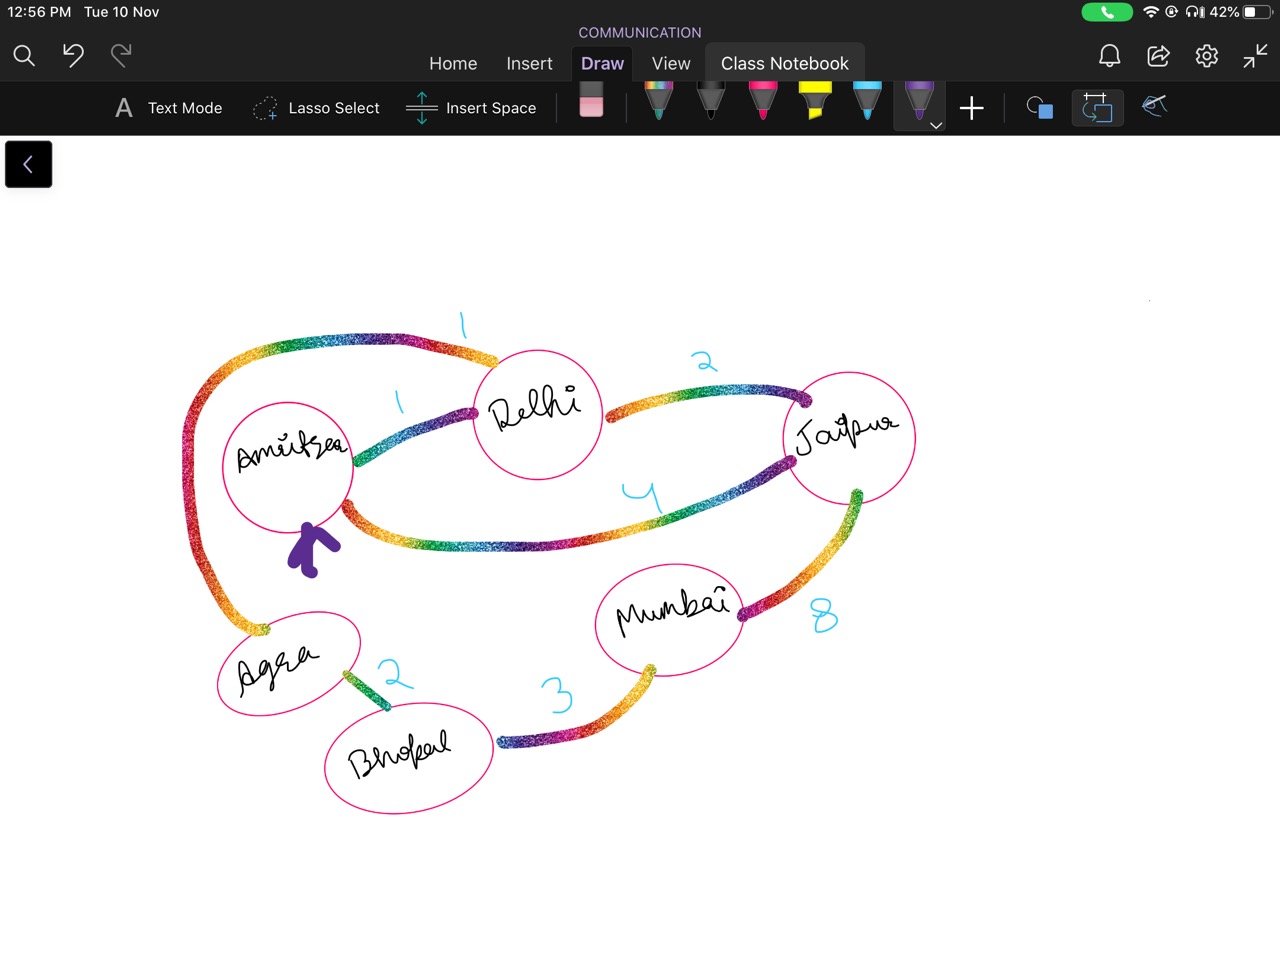 12:56 PM Tue 10 Nov 42%
COMMUNICATION
Home Insert Draw View Class Notebook
A Text Mode Lasso Select Insert Space
1
2
1
Delhi
Jaipur
4
Mumbai
8
Agra
2
3
Bhopal